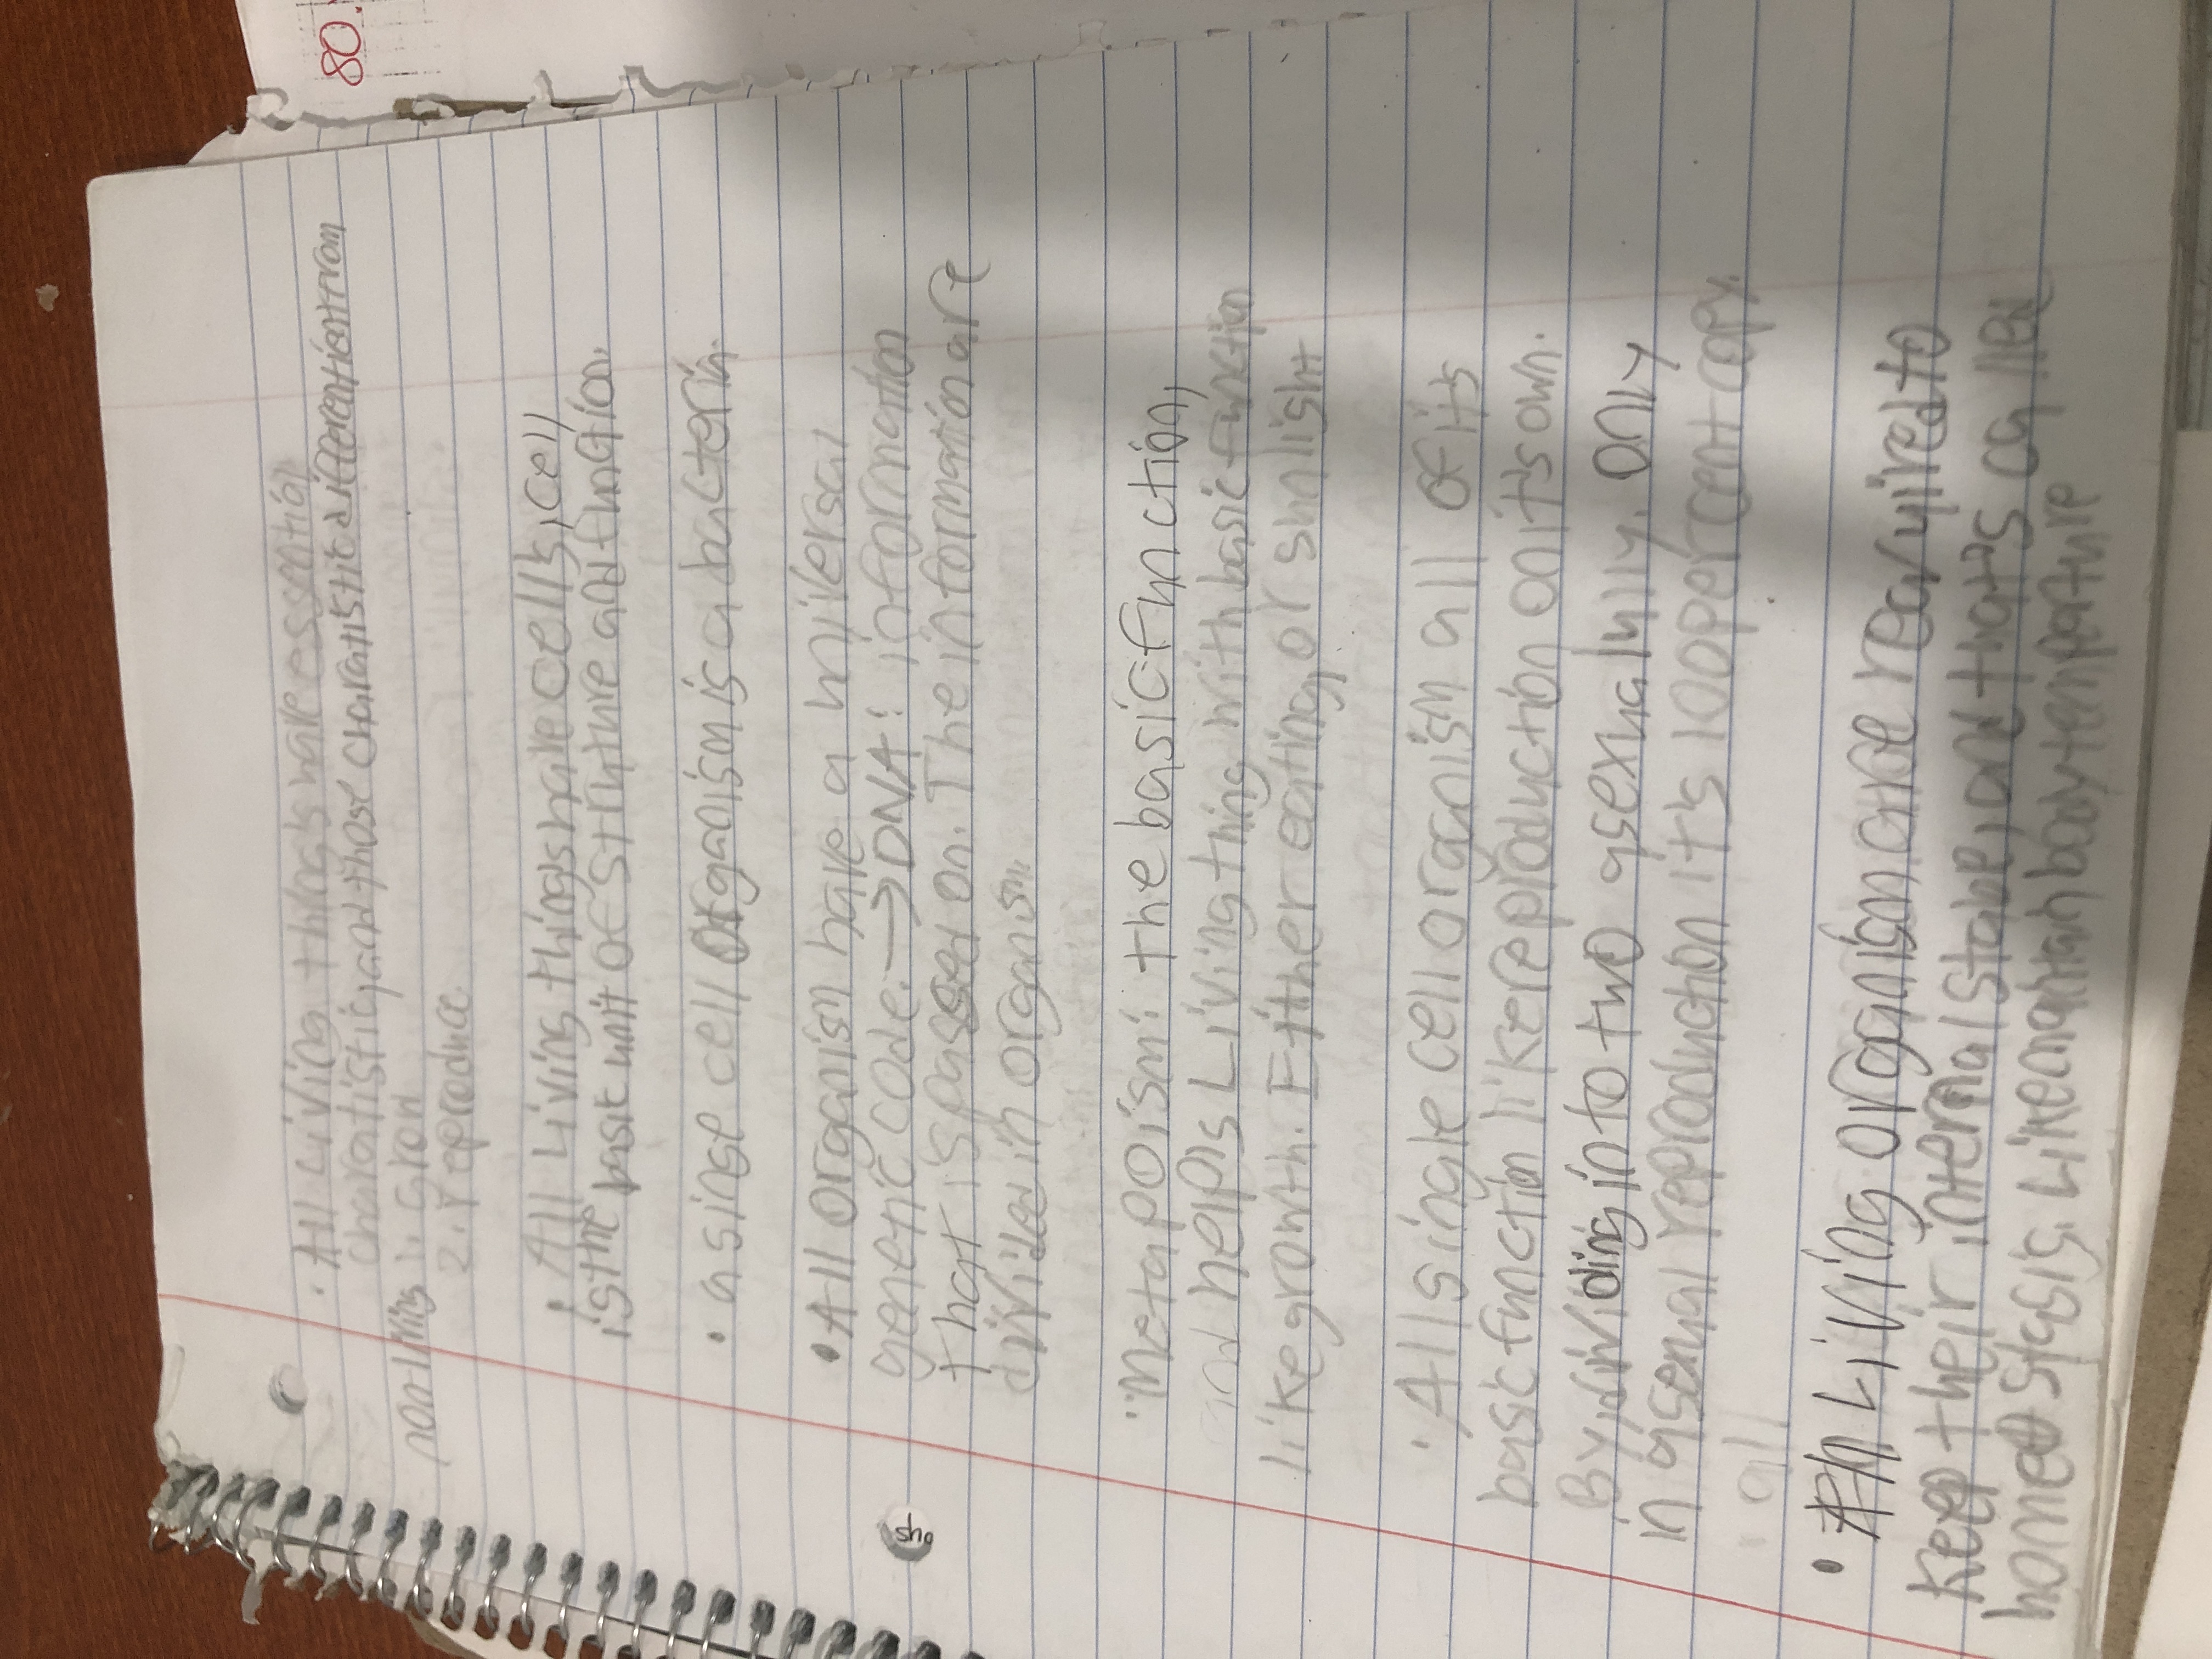 80.
· All Living things have essential
charatistic, and those charatistic differention from
non-living 1. Grow
2. reproduce.
• All Living things have cells, cell
is the basic unit of struture and function.
· a singe cell organism is a bacteria.
• All organism have a universal
genetic code. → DNA: information
that is passed on. The information are
divided in organism.
· Metapoism: the basic function,
and helps Living thing with basic function
like growth. Either eating, or sunlisht
· All single cell organism all of its
basic function like reproduction on its own.
By, dividing into two asexually. only
in asexual reproduction it's 100 percent copy.
· all
• All Living organism are required to
keep their internal stable, and that's called
homeostasis. Like human body tempature
sho